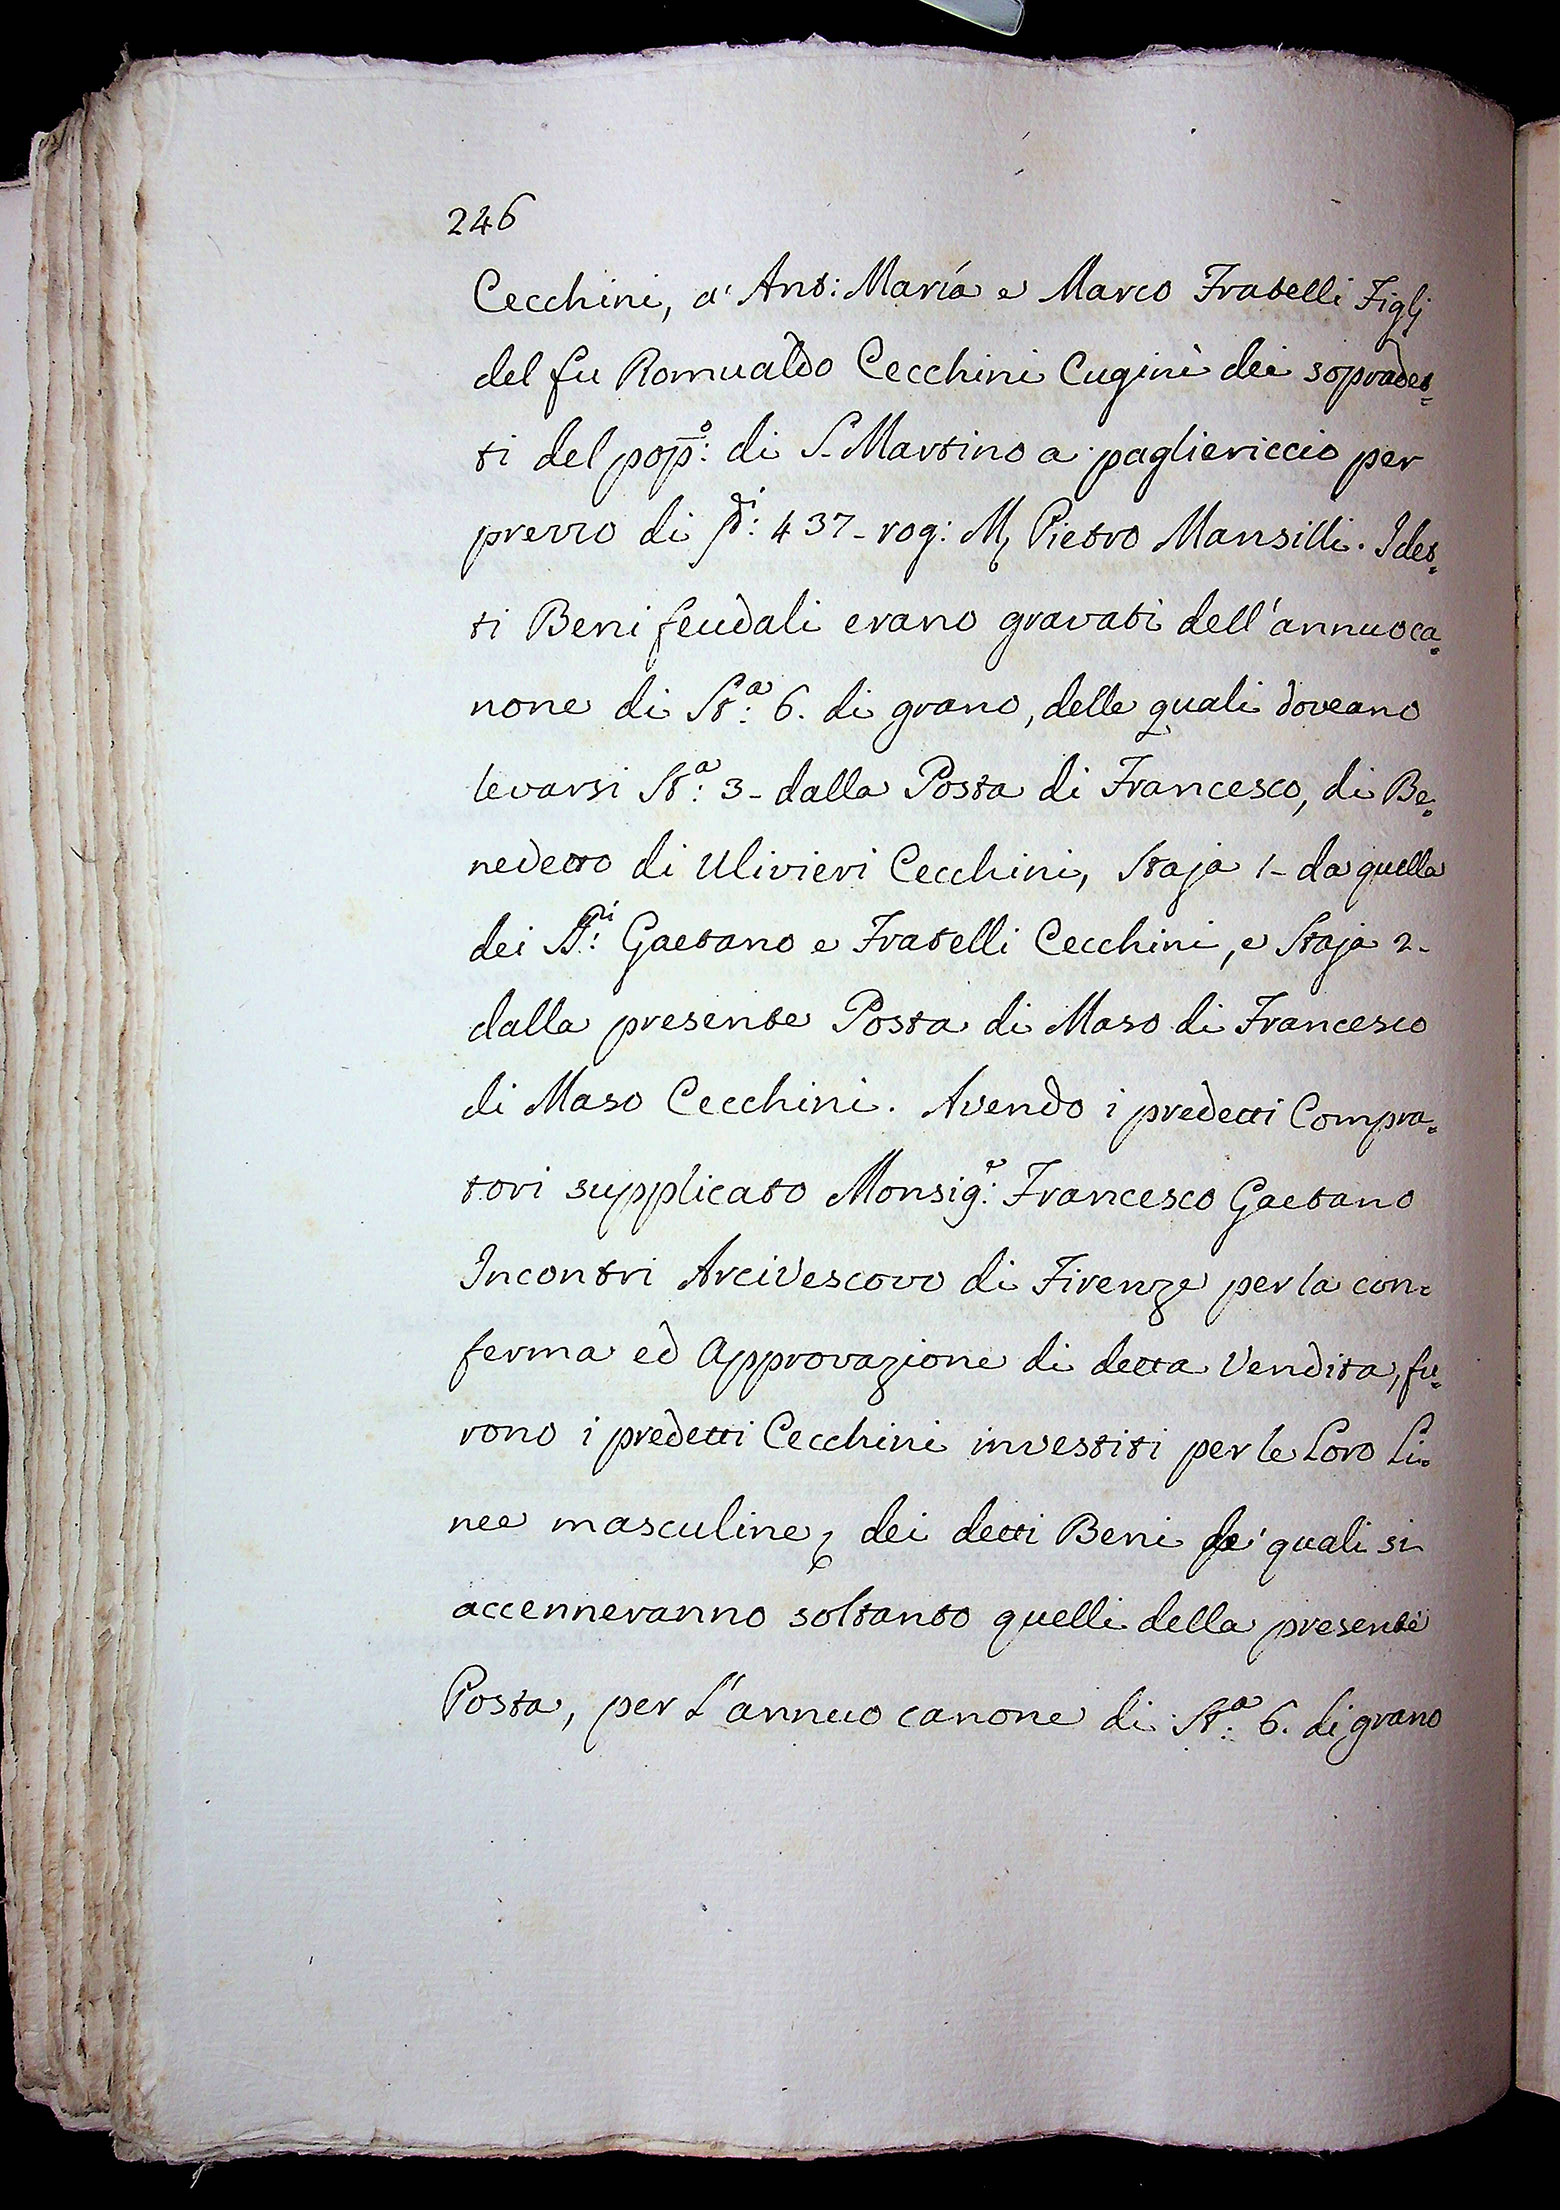 246
Cecchini, a' Ant: Maria e Marco Fratelli Figlj
del fu Romualdo Cecchini Cugini dei sopradet=
ti del pop.º: di S. Martino a pagliericcio per
prezzo di 437- rog: M, Pietro Mansilli. I det=
ti Beni feudali erano gravati dell'annuo ca=
none di St.ª: 6. di grano, delle quali doveano
levarsi St.ª: 3- dalla Posta di Francesco, di Be=
nedetto di Ulivieri Cecchini, Staja 1- da quella
dei Gaetano e Fratelli Cecchini, e Staja 2-
dalla presente Posta di Maso di Francesco
di Maso Cecchini. Avendo i predetti Compra=
tori supplicato Monsig.e: Francesco Gaetano
Incontri Arcivescovo di Firenze per la con=
ferma ed Approvazione di detta Vendita, fu=
rono i predetti Cecchini investiti per le Loro Li=
nee masculine, dei detti Beni de' quali si
accenneranno soltanto quelli della presente
Posta, per L'annuo canone di St.ª: 6. di grano